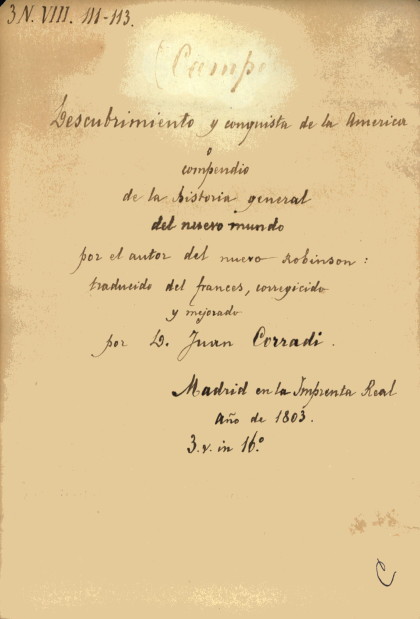 3 N. VIII. 111-113.
(Campe
Descubrimiento y conquista de la America
o
compendio
de la historia general
del nuevo mundo
por el autor del nuevo Robinson:
traducido del frances, corregicido
y mejorado
por D. Juan Corradi.
Madrid en la Imprenta Real
año de 1803.
3. v. in 16.º
C